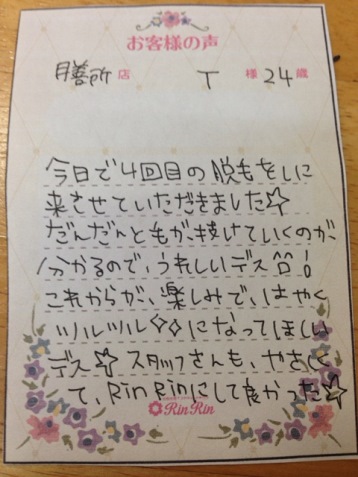 お客様の声
膳所店 T 様 24歳
今日で4回目の脱毛をしに
来させていただきました☆
だんだんと毛が、抜けていくのが、
分かるので、うれしいデス^^!
これからが、楽しみで、はやく
ツルツル◇◇になってほしい
デス☆ スタッフさんも、やさしく
て、RinRinにして良かった☆
RinRin